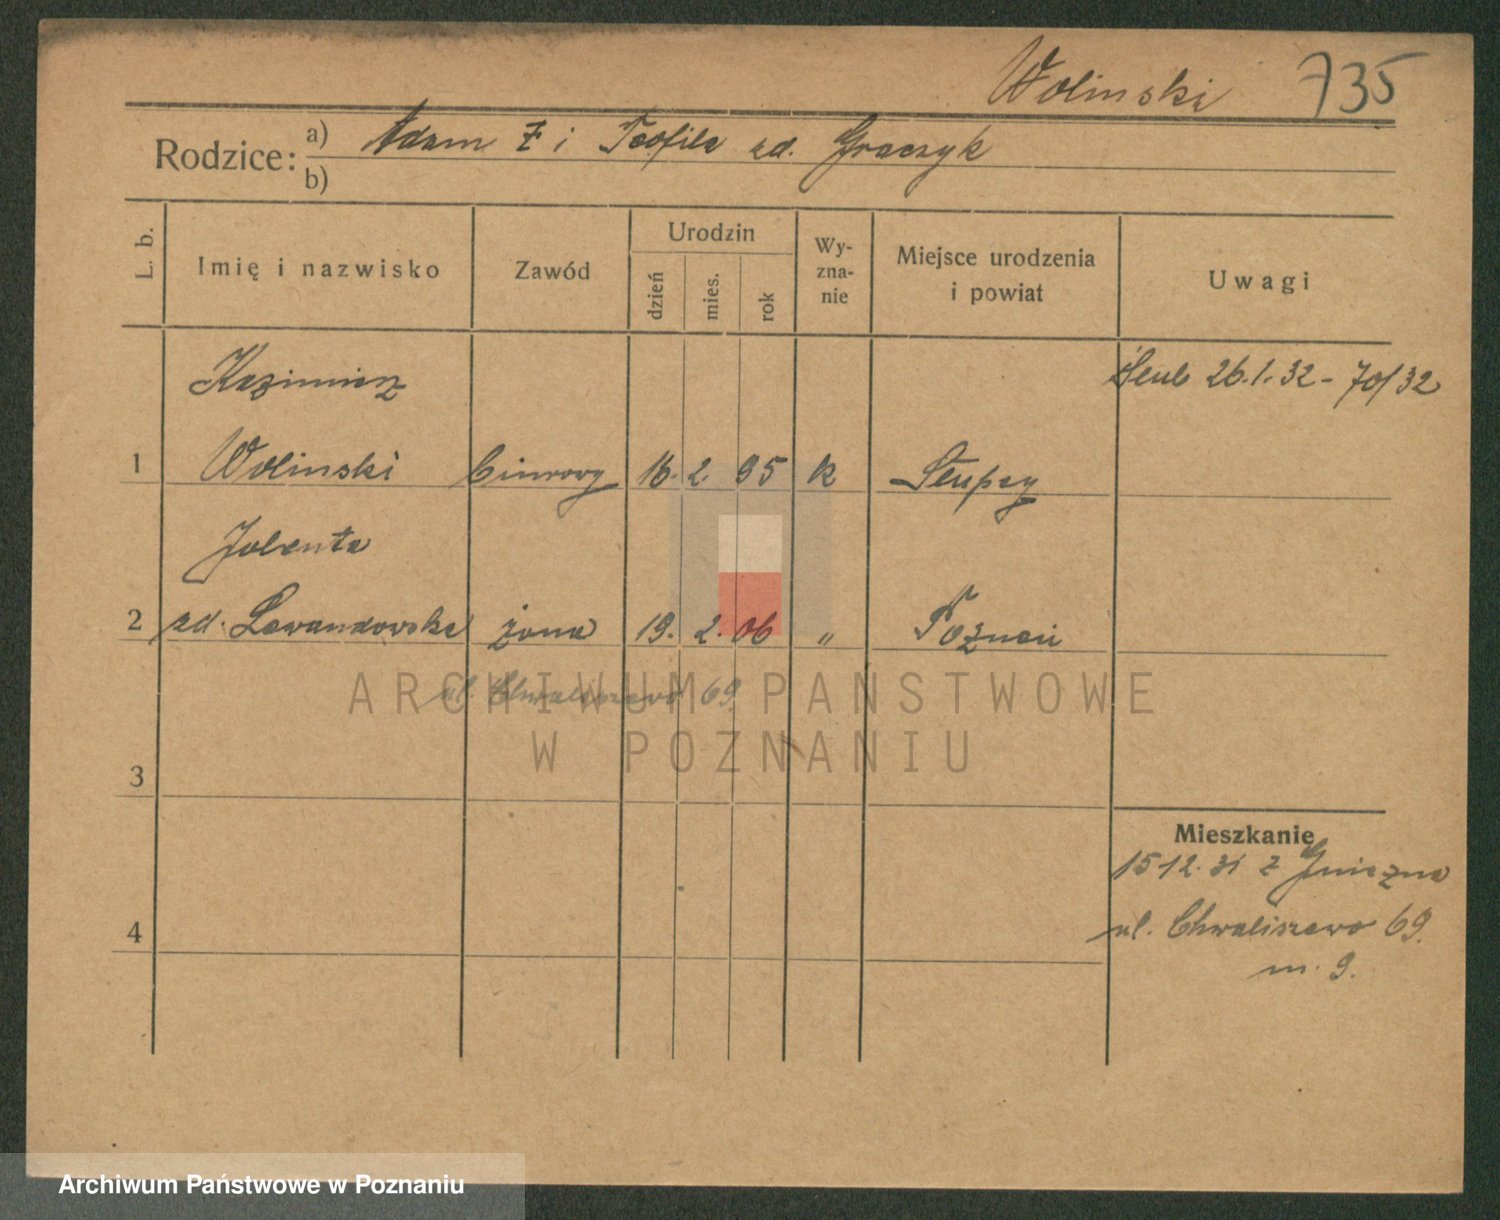 Wolinski 735
Rodzice: a) Adam Ż i Teofila zd. Graczyk
b)
L. b. Imię i nazwisko Zawód Urodzin dzień mies. rok Wy-zna-nie Miejsce urodzenia i powiat Uwagi
Kazimierz Ślub 26.1.32 - 70/32
1 Wolinski 16. 2. 95 k Słupcy
Jolenta
2 zd. Lewandowska żona 19. 2. 06 " Poznań
ul. Chwaliszewo 69.
ARCHIWUM PAŃSTWOWE
W POZNANIU
3
Mieszkanie
15 12. 31 z Gniezna
4 ul. Chwaliszewo 69.
m. 9.
Archiwum Państwowe w Poznaniu